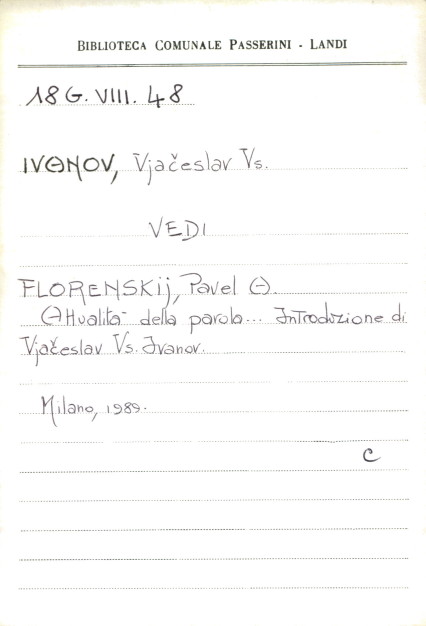 BIBLIOTECA COMUNALE PASSERINI - LANDI
18 G. VIII. 48
IVANOV, Vjačeslav Vs.
VEDI
FLORENSKIJ, Pavel A.
Attualità della parola... Introduzione di
Vjačeslav Vs. Ivanov.
Milano, 1989.
C